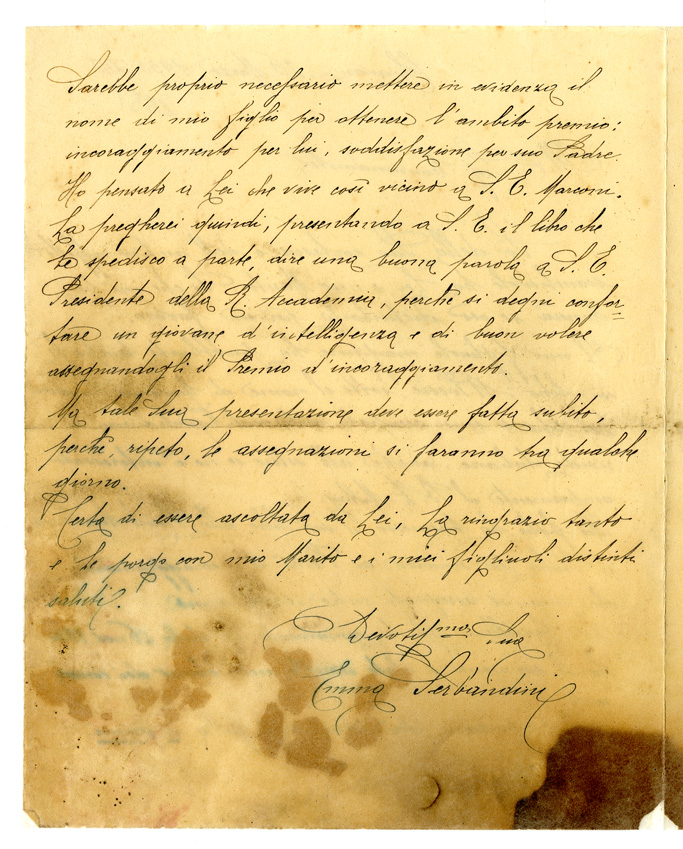 Sarebbe proprio necessario mettere in evidenza il
nome di mio figlio per ottenere l'ambito premio:
incoraggiamento per lui, soddisfazione per suo Padre.
Ho pensato a Lei che vive così vicino a S. E. Marconi.
La pregherei quindi, presentando a S. E. il libro che
Le spedisco a parte, dire una buona parola a S. E.
Presidente della R. Accademia, perchè si degni confor=
tare un giovane d'intelligenza e di buon volere
assegnandogli il Premio d'incoraggiamento.
Ma tale Sua presentazione deve essere fatta subito,
perchè, ripeto, le assegnazioni si faranno tra qualche
giorno.
Certa di essere ascoltata da Lei, La ringrazio tanto
e Le porgo con mio Marito e i miei figliuoli distinti
saluti.
Devotissma Sua
Emma Serbandini